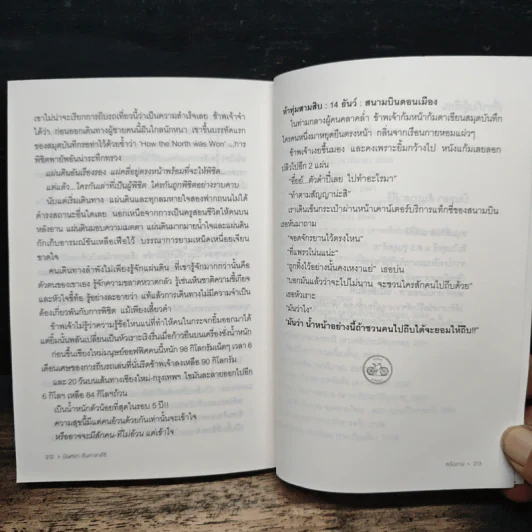 เขาไม่น่าจะเรียกการถีบรถเที่ยวนี้ว่าเป็นความสำเร็จเลย ข้าพเจ้าจำ
ได้ว่า ก่อนออกเดินทางผู้ชายคนนี้ฝันไกลนักหนา เขาขึ้นบรรทัดแรก
ของสมุดบันทึกรอท่าไว้ด้วยซ้ำว่า 'How the North was Won' ...การ
พิชิตพายัพอันน่าระทึกทรวง
แผ่นดินอันเรืองรอง แผ่คลี่อยู่ตรงหน้าพร้อมที่จะให้พิชิต...
แต่แล้ว...ใครกันเล่าที่เป็นผู้พิชิต ใครกันถูกพิชิตอย่างราบคาบ
นับแต่เริ่มเดินทาง แผ่นดินและทุกลมหายใจสองฟากถนนไม่ได้
ดำรงสถานะอื่นใดเลย นอกเหนือจากการเป็นครูสอนชีวิตให้คนบน
หลังอาน แผ่นดินมอบความเมตตา แผ่นดินมากมายน้ำใจและแผ่นดิน
กักเก็บอารมณ์ขันเหลือเฟือไว้ บรรณาการยามเหน็ดเหนื่อยเจียน
ขาดใจ
คนเดินทางลำพังไม่เพียงรู้จักแผ่นดิน ที่เขารู้จักมากกว่านั้นคือ
ตัวตนของเขาเอง รู้จักความขลาดหวาดกลัว รู้เช่นเห็นชาติความขี้เกียจ
และหัวใจขี้ท้อ รู้อย่างละอายว่า แท้แล้วการเดินทางไม่มีความจำเป็น
ต้องเกี่ยวพันกับการพิชิต แม้เพียงเสี้ยวคำ
ข้าพเจ้าไม่รู้ว่าความรู้ข้อไหนแน่ที่ทำให้คนในกระจกยิ้มออกมาได้
แต่ยิ้มนั้นพลันเปลี่ยนเป็นหัวเราะเริงรื่นเมื่อก้าวขึ้นบนเครื่องชั่งน้ำหนัก
ก่อนขึ้นเชียงใหม่มนุษย์ออฟฟิศคนนี้หนัก 98 กิโลกรัมเน็ตๆ เวลา 6
เดือนเศษของการถีบรถเล่นที่นั่นรีดข้าพเจ้าลงเหลือ 90 กิโลกรัม
และ 20 วันบนเส้นทางเชียงใหม่-กรุงเทพฯ ไขมันละลายออกไปอีก
6 กิโลฯ เหลือ 84 กิโลฯถ้วน
เป็นน้ำหนักตัวน้อยที่สุดในรอบ 5 ปี!!
ความสุขนี้มีแต่คนอ้วนด้วยกันเท่านั้นจะเข้าใจ
หรืออาจจะมีสักคน-ที่ไม่อ้วน แต่เข้าใจ
ค่ำทุ่มสามสิบ : 14 ธันว์ : สนามบินดอนเมือง
ในท่ามกลางผู้คนคลาคล่ำ ข้าพเจ้าก้มหน้าก้มตาเขียนสมุดบันทึก
ใครคนหนึ่งมาหยุดยืนตรงหน้า กลิ่นจากเรือนกายหอมแผ่วๆ
ข้าพเจ้าเงยขึ้นมอง และคงเพราะยิ้มกว้างไป หนังแก้มเลยลอก
ปลิวไปอีก 2 แผ่น
"อื้ออื..ตัวดำปี๋เลย ไปทำอะไรมา"
"ทำตามสัญญาน่ะสิ"
เราเดินเข็นกระเป๋าผ่านหน้าเคาน์เตอร์บริการแท็กซี่ของสนามบิน
เธอหันมาถาม
"จอดจักรยานไว้ตรงไหน"
"ที่แพรวไน่นแน่ะ"
"ถูกทิ้งไว้อย่างนั้นคงเหงาแย่" เธอบ่น
"บอกมันแล้วว่าจะไปไม่นาน จะชวนใครสักคนไปถีบด้วย"
เธอหัวเราะ
"มันว่าไง"
"มันว่า น้ำหน้าอย่างนี้ถ้าชวนคนไปถีบได้จะยอมให้ถีบ!!"